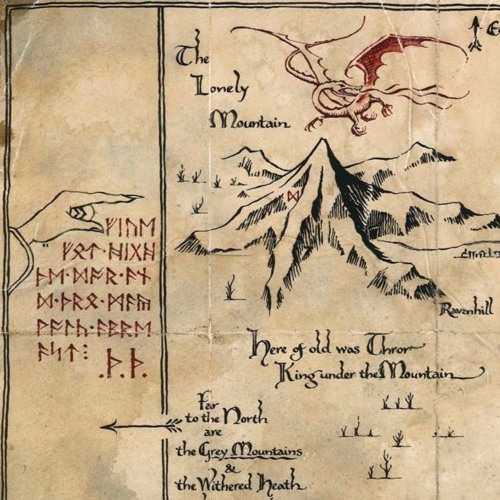 The
Lonely
Mountain
ᚠᛁᚢᛖ
ᚠᛟᛏ·ᚻᛁᚷᚻ
ᚦᛖ·ᛞᚩᚱ·ᚪᚾ
ᛞ·ᚦᚱᛟ·ᛗᚪᚣ
ᚹᚪᛚᚳ·ᚪᛒᚱᛖ
ᚪᛋᛏ⁝
.ᚦ.ᚦ.
ᛞ
Ravenhill
Here of old was Thror
King under the Mountain
Far
to the North
are
the Grey Mountains
&
the Withered Heath